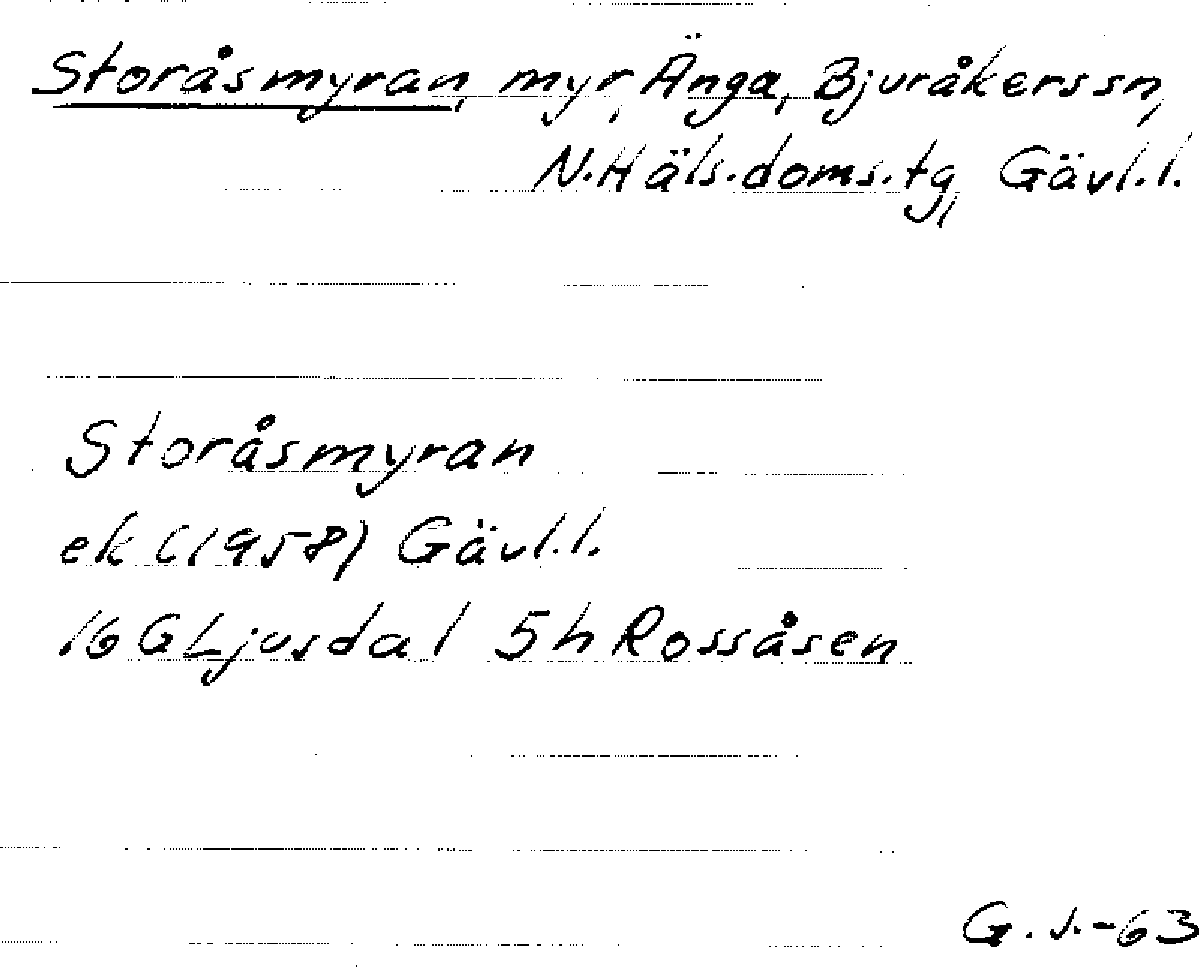 Storåsmyran, myr, Änga, Bjuråkers sn,
N. Häls. doms. tg, Gävl. l.
Storåsmyran
ek (1958) Gävl. l.
16 G Ljusdal 5 h Rossåsen
G. J. -63